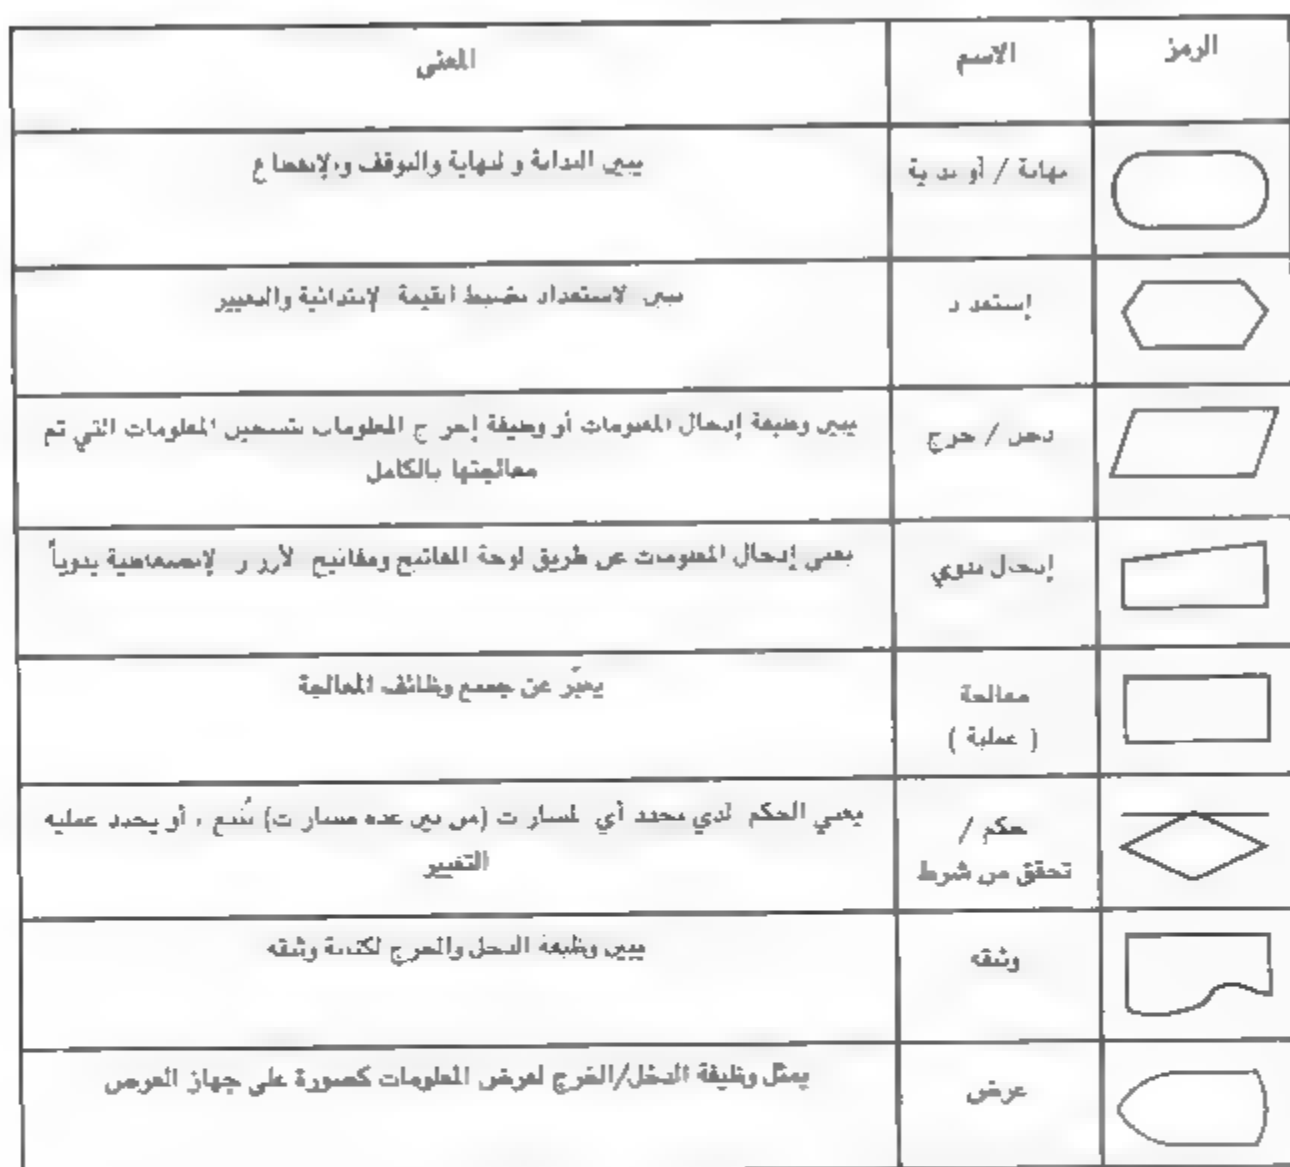 الرمز
الاسم
المعنى
نهاية / أو بداية
يبين البداية والنهاية والتوقف والإنقطاع
إستعداد
يبين الاستعداد بضبط القيمة الإبتدائية والتغيير
دخل / خرج
يبين وظيفة إدخال المعلومات أو وظيفة إخراج المعلومات بتسجيل المعلومات التي تم
معالجتها بالكامل
إدخال يدوي
يعني إدخال المعلومات عن طريق لوحة المفاتيح ومفاتيح الأزرار الإنضغاطية يدوياً
معالجة
( عملية )
يعبّر عن جميع وظائف المعالجة
حكم /
تحقق من شرط
يعني الحكم الذي يحدد أي المسارات (من بين عدة مسارات) تُتبع ، أو يحدد عملية
التغيير
وثيقة
يبين وظيفة الدخل والخرج لكتابة وثيقة
عرض
يمثل وظيفة الدخل/الخرج لعرض المعلومات كصورة على جهاز العرض